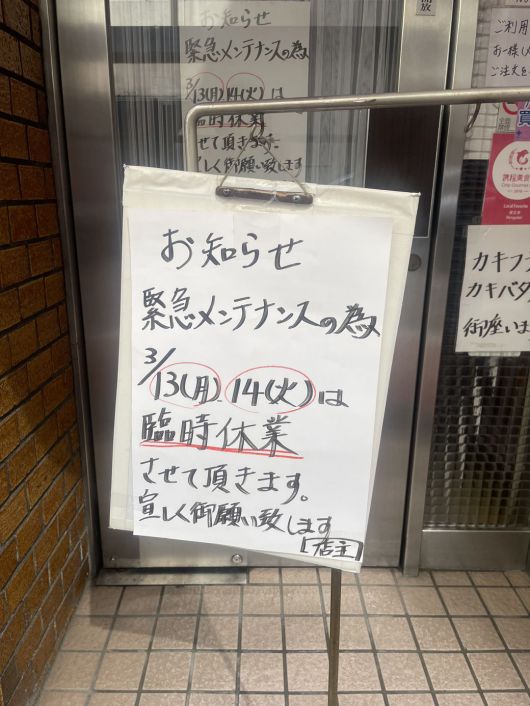 お知らせ
緊急メンテナンスの為
3/13(月)14(火)は
臨時休業
せて頂きます
宜しく御願い致します
開放
ご利用
お一様
ご注文を
カキフ
カキバタ
御座いま
お知らせ
緊急メンテナンスの為
3/13(月) 14(火)は
臨時休業
させて頂きます。
宜しく御願い致します
[店主]